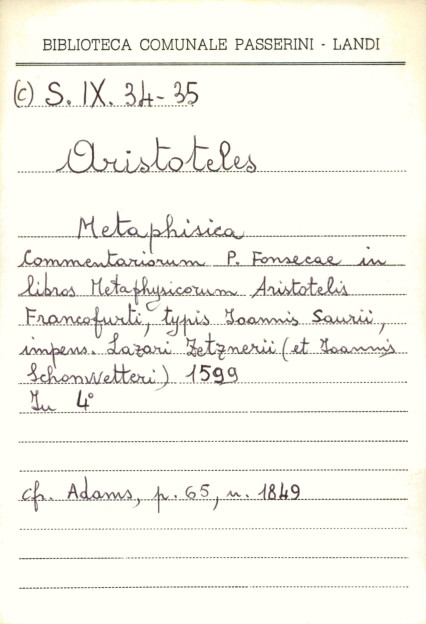 BIBLIOTECA COMUNALE PASSERINI - LANDI
(C) S. IX. 34-35
Aristoteles
Metaphisica
Commentariorum P. Fonsecae in
libros Metaphysicorum Aristotelis
Francofurti, typis Ioannis Saurii,
impens. Lazari Zetznerii (et Ioannis
Schonwetteri) 1599
In 4°
cfr. Adams, p. 65, n. 1849